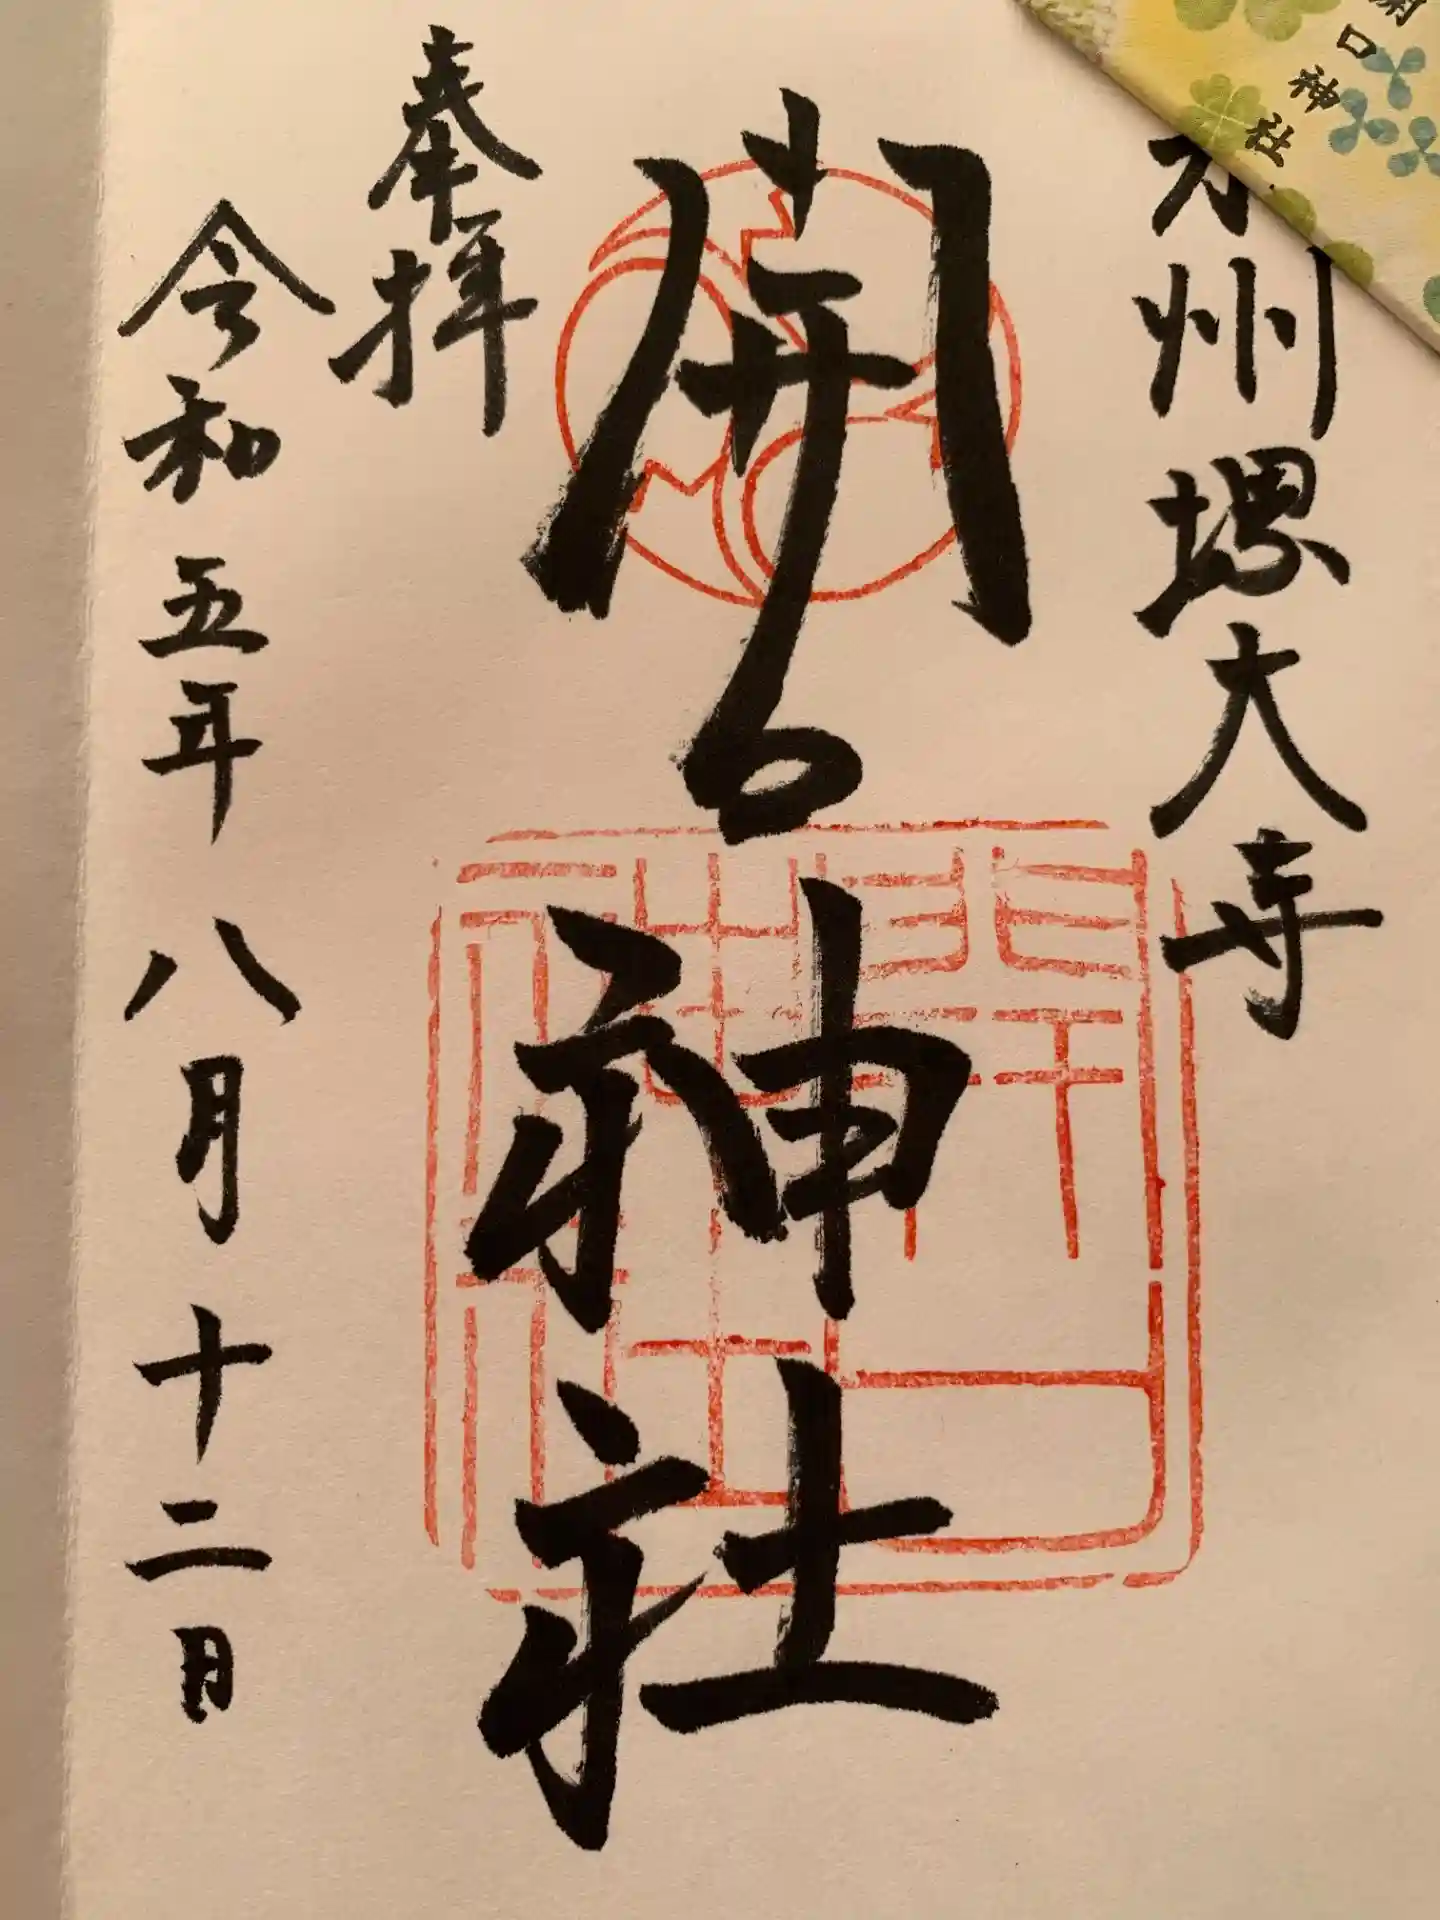 開口神社
泉州堺大寺
開口神社
開口
神社
奉拝
令和五年八月十二日